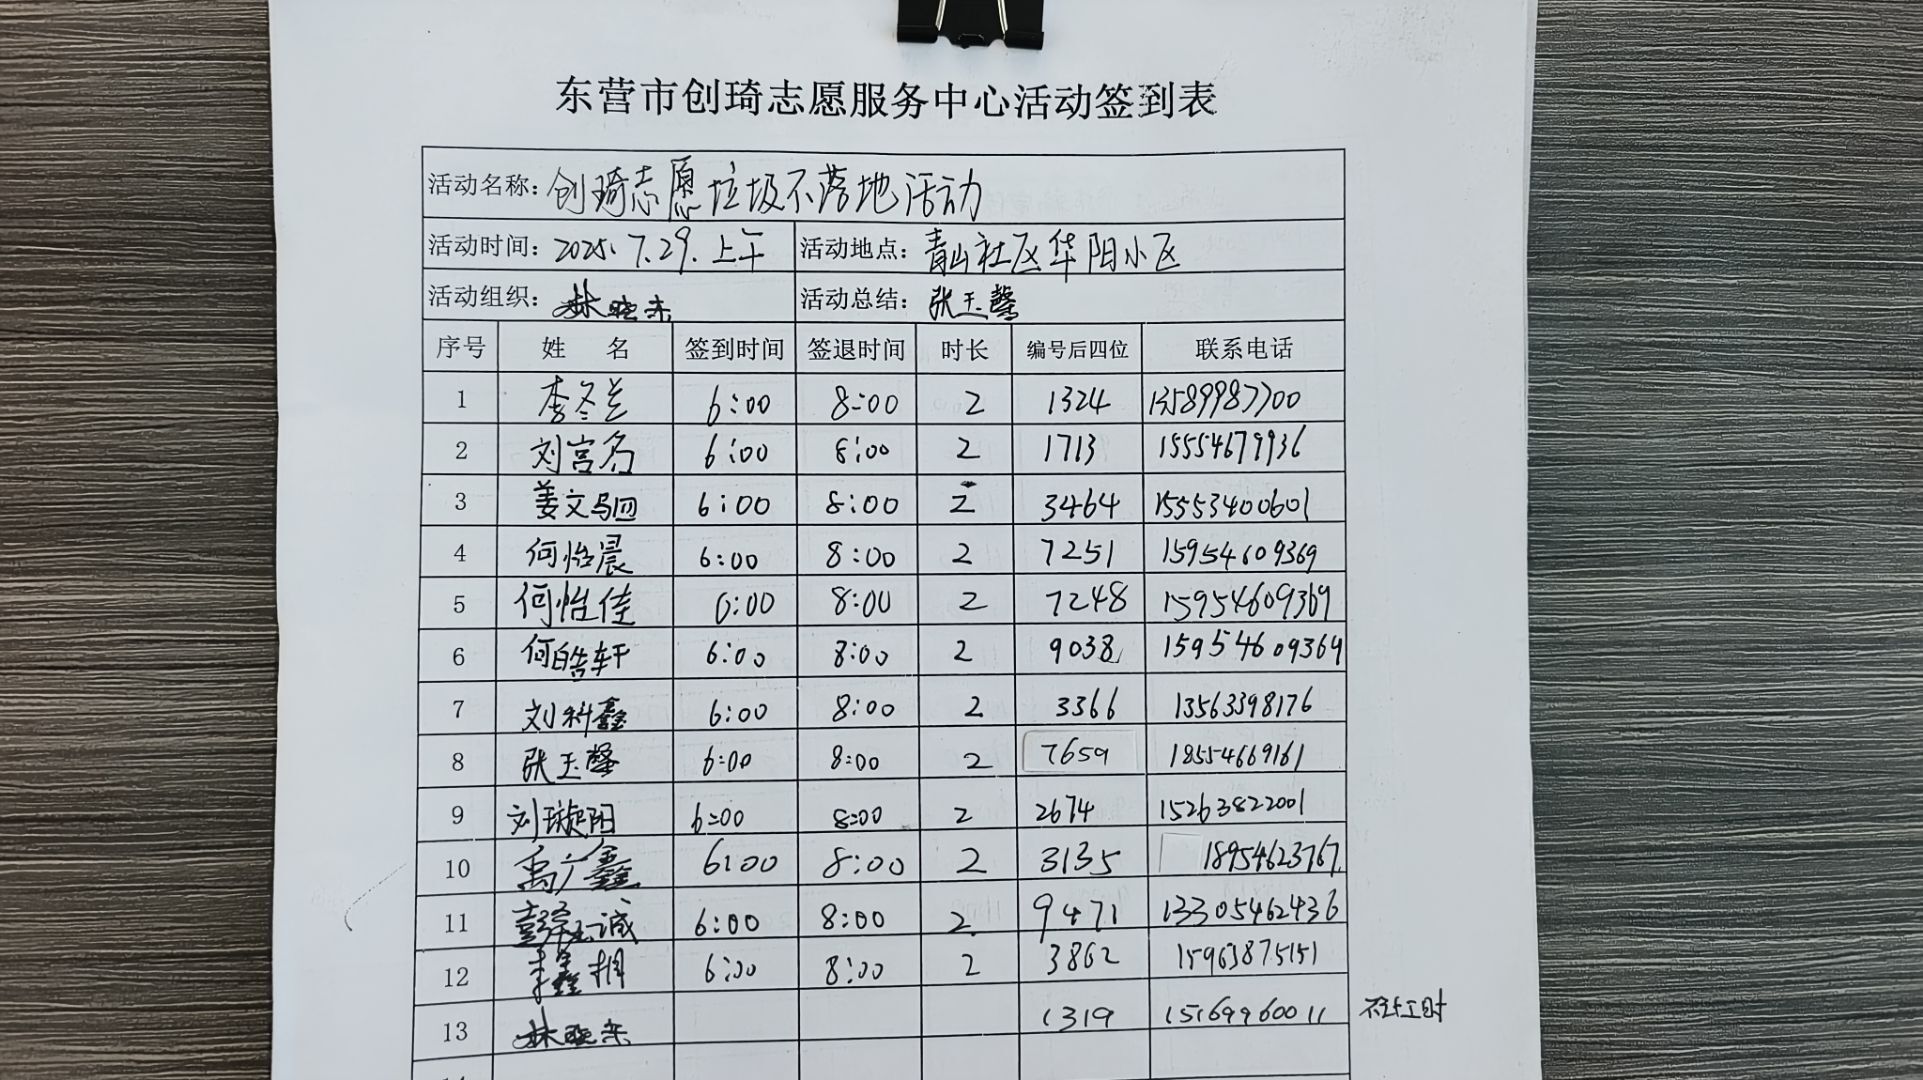 东营市创琦志愿服务中心活动签到表
活动名称：创琦志愿垃圾不落地活动
活动时间：2025.7.29.上午 活动地点：青山社区华阳小区
活动组织：林晓东 活动总结：张玉馨
序号 姓 名 签到时间 签退时间 时长 编号后四位 联系电话
1 李冬兰 6:00 8:00 2 1324 13589987700
2 刘宫名 6:00 8:00 2 1713 15554679936
3 姜文驷 6:00 8:00 2 3464 15553400601
4 何怡晨 6:00 8:00 2 7251 15954609369
5 何怡佳 6:00 8:00 2 7248 15954609369
6 何皓轩 6:00 8:00 2 9038 15954609369
7 刘科鑫 6:00 8:00 2 3366 13563398176
8 张玉馨 6:00 8:00 2 7659 18554669161
9 刘璇阳 6:00 8:00 2 2674 15263822001
10 禹广鑫 6:00 8:00 2 3135 18954623767
11 诚 6:00 8:00 2 9471 13305462436
12 李鑫桐 6:00 8:00 2 3862 15963875151
13 林晓东 1319 15169960011 不计工时